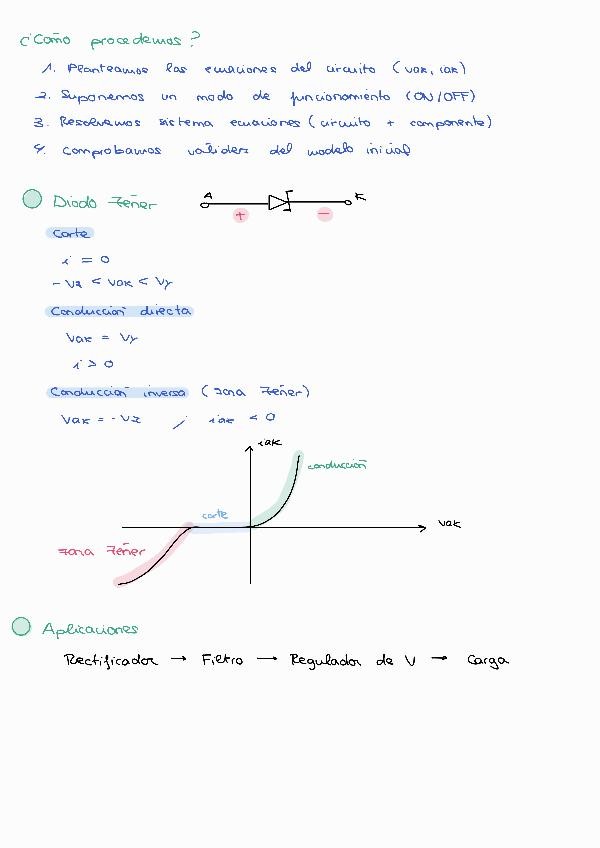 ¿Cómo procedemos?
1. Planteamos las ecuaciones del circuito (vak, iak)
2. Suponemos un modo de funcionamiento (ON/OFF)
3. Resolvemos sistema ecuaciones (circuito + componente)
4. Comprobamos validez del modelo inicial
Diodo Zéner
A K
+ −
Corte
i = 0
-Vz < Vak < Vγ
Conducción directa
Vak = Vγ
i > 0
Conducción inversa (zona Zéner)
Vak = -Vz / iak < 0
iak
conducción
corte
vak
zona Zéner
Aplicaciones
Rectificador → Filtro → Regulador de V → Carga